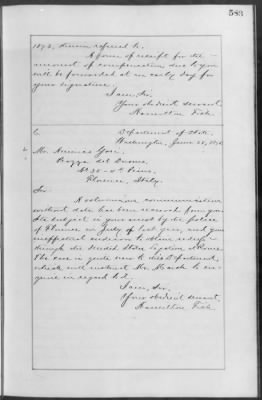 583
1873, therein referred to.
A form of receipt for the
amount of compensation due to you
will be forwarded at an early day for
your signature.
I am, Sir,
Your obedient servant,
Hamilton Fish
Department of State,
Washington, June 23, 187
Mr.
Piazza del Duomo,
No 20
Florence, Italy.
Sir
A communication
without date has been received from you
Its subject is your arrest by the police
of Florence in July of last year, and your
ineffectual endeavor to obtain redress
through the United States Legation at Rome.
The case is quite new to this Department,
which will instruct Mr. Marsh to en-
quire in regard to it.
I am, Sir,
Your obedient servant,
Hamilton Fish